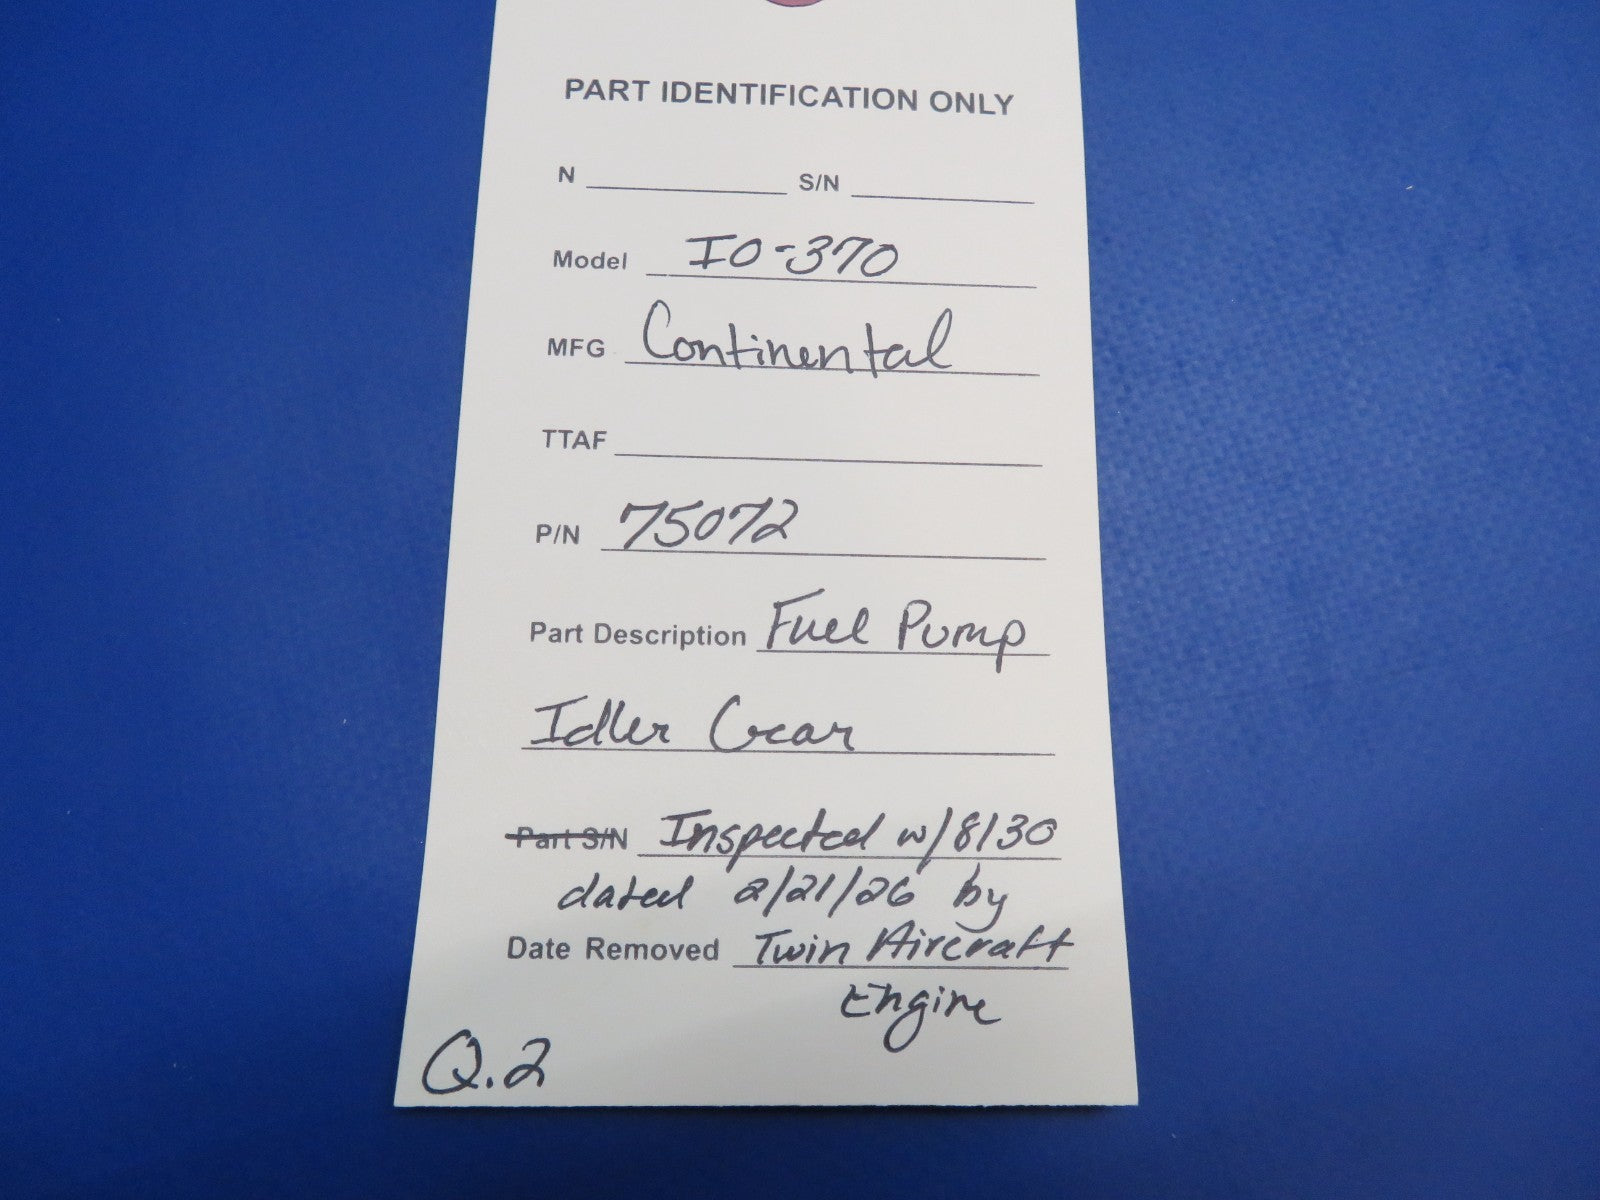 PART IDENTIFICATION ONLY
N S/N
Model IO-370
MFG Continental
TTAF
P/N 75072
Part Description Fuel Pump
Idler Gear
Part S/N Inspected w/8130
dated 2/21/26 by
Date Removed Twin Aircraft
Engine
Q.2